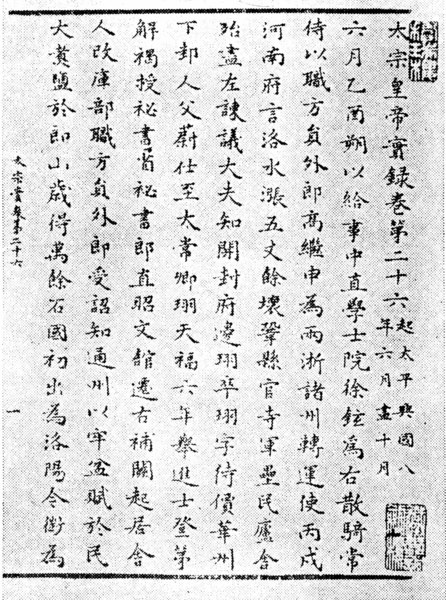 太宗皇帝實錄卷第二十六 起太平興國八
年六月盡十月
六月乙酉朔以給事中直學士院徐鉉為右散騎常
侍以職方貟外郎髙繼申為兩浙諸州轉運使丙戌
河南府言洛水漲五丈餘壞鞏縣官寺軍壘民廬舍
殆盡左諫議大夫知開封府邊珝卒珝字待價華州
下邽人父蔚仕至太常卿珝天福六年舉進士登第
解褐授祕書省祕書郎直昭文館遷右補闕起居舍
人改庫部職方貟外郎受詔知通州以牢盆賦於民
大煑鹽於即山歲得萬餘石國初出為洛陽令衡為
太宗實卷第二十六
一